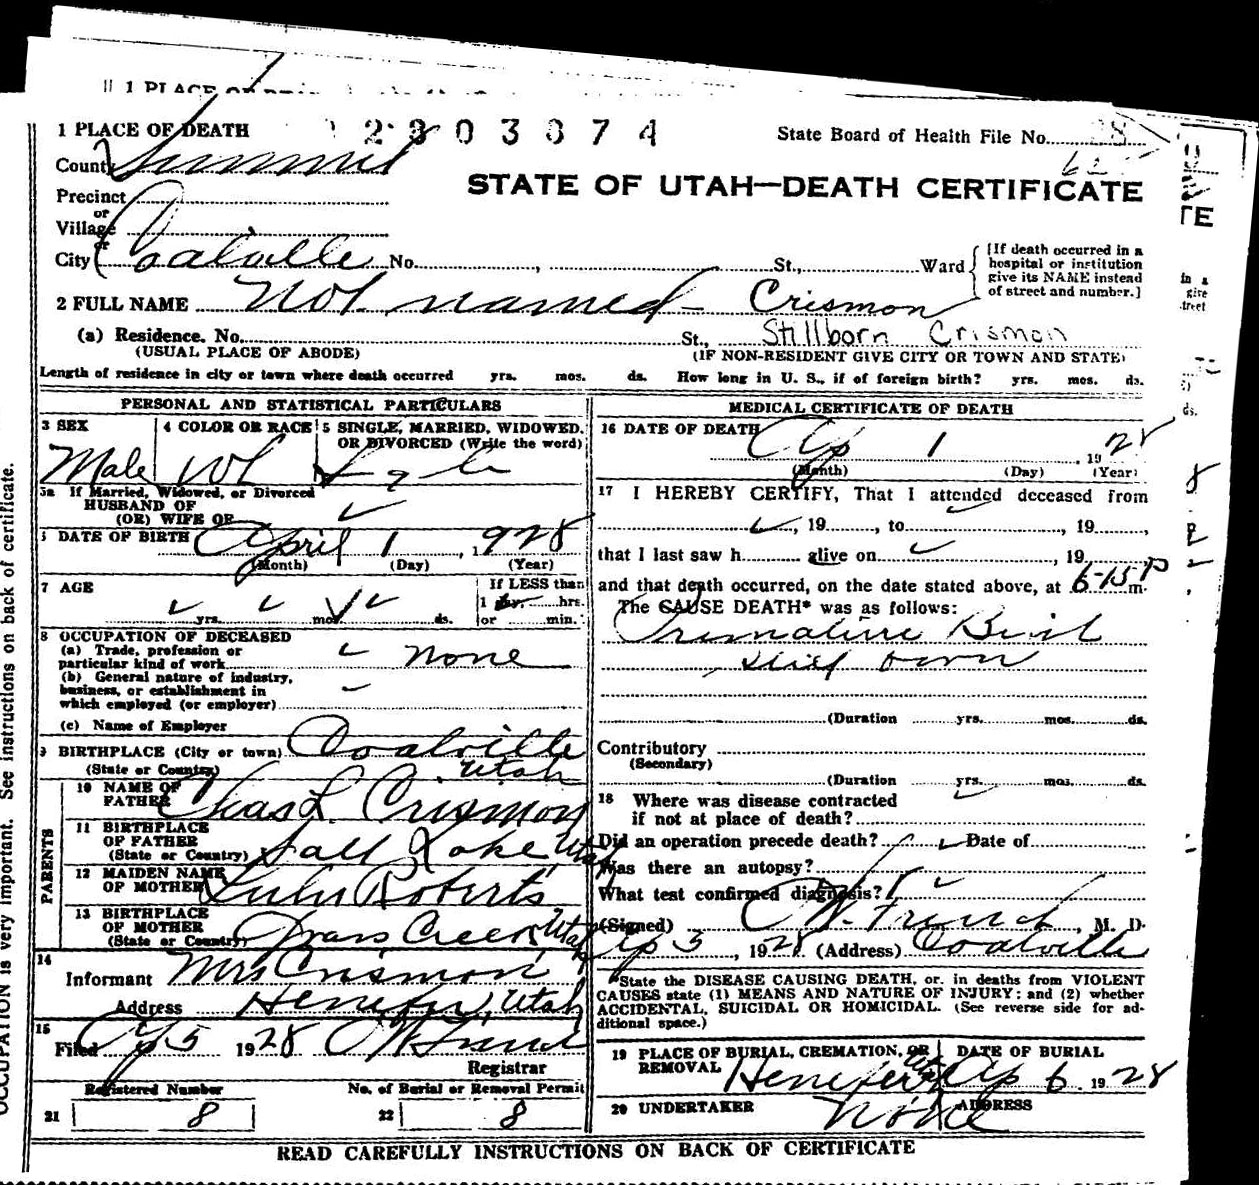 1 PLACE OF DEATH
2303674
State Board of Health File No. 28
County Summit
STATE OF UTAH—DEATH CERTIFICATE
Precinct
or
Village
or
City Coalville No. , St., Ward
[If death occurred in a hospital or institution give its NAME instead of street and number.]
2 FULL NAME Not named - Crismon
(a) Residence. No. St., Stillborn Crismon
(USUAL PLACE OF ABODE) (IF NON-RESIDENT GIVE CITY OR TOWN AND STATE)
Length of residence in city or town where death occurred yrs. mos. ds. How long in U. S., if of foreign birth? yrs. mos. ds.
PERSONAL AND STATISTICAL PARTICULARS
3 SEX Male
4 COLOR OR RACE Wh
5 SINGLE, MARRIED, WIDOWED, OR DIVORCED (Write the word) Single
5a If Married, Widowed, or Divorced
HUSBAND OF
(OR) WIFE OF
DATE OF BIRTH April 1, 1928
(Month) (Day) (Year)
7 AGE
yrs. mos. ds.
If LESS than
1 day, hrs.
or min.
8 OCCUPATION OF DECEASED
(a) Trade, profession or
particular kind of work None
(b) General nature of industry,
business, or establishment in
which employed (or employer)
(c) Name of Employer
9 BIRTHPLACE (City or town) Coalville
(State or Country) Utah
PARENTS
10 NAME OF FATHER Chas L. Crismon
11 BIRTHPLACE OF FATHER (State or Country) Salt Lake Utah
12 MAIDEN NAME OF MOTHER Lulu Roberts
13 BIRTHPLACE OF MOTHER (State or Country) Grass Creek Utah
14
Informant Mrs Crismon
Address Henefer, Utah
15
Filed Ap 5 1928
Registrar
Registered Number
21 8
No. of Burial or Removal Permit
22 8
MEDICAL CERTIFICATE OF DEATH
16 DATE OF DEATH Ap 1, 1928
(Month) (Day) (Year)
17 I HEREBY CERTIFY, That I attended deceased from
, 19 , to , 19 ,
that I last saw h alive on , 19
and that death occurred, on the date stated above, at 6-15 P m.
The CAUSE DEATH* was as follows:
Premature Birth
Still born
(Duration yrs. mos. ds.
Contributory
(Secondary)
(Duration yrs. mos. ds.
18 Where was disease contracted
if not at place of death?
Did an operation precede death? Date of
Was there an autopsy?
What test confirmed diagnosis?
(Signed) , M. D.
Ap 5, 1928 (Address) Coalville
*State the DISEASE CAUSING DEATH, or, in deaths from VIOLENT
CAUSES state (1) MEANS AND NATURE OF INJURY; and (2) whether
ACCIDENTAL, SUICIDAL OR HOMICIDAL. (See reverse side for ad-
ditional space.)
19 PLACE OF BURIAL, CREMATION, OR REMOVAL Henefer Ut
DATE OF BURIAL Ap 6 1928
20 UNDERTAKER None
ADDRESS
READ CAREFULLY INSTRUCTIONS ON BACK OF CERTIFICATE
OCCUPATION is very important. See instructions on back of certificate.